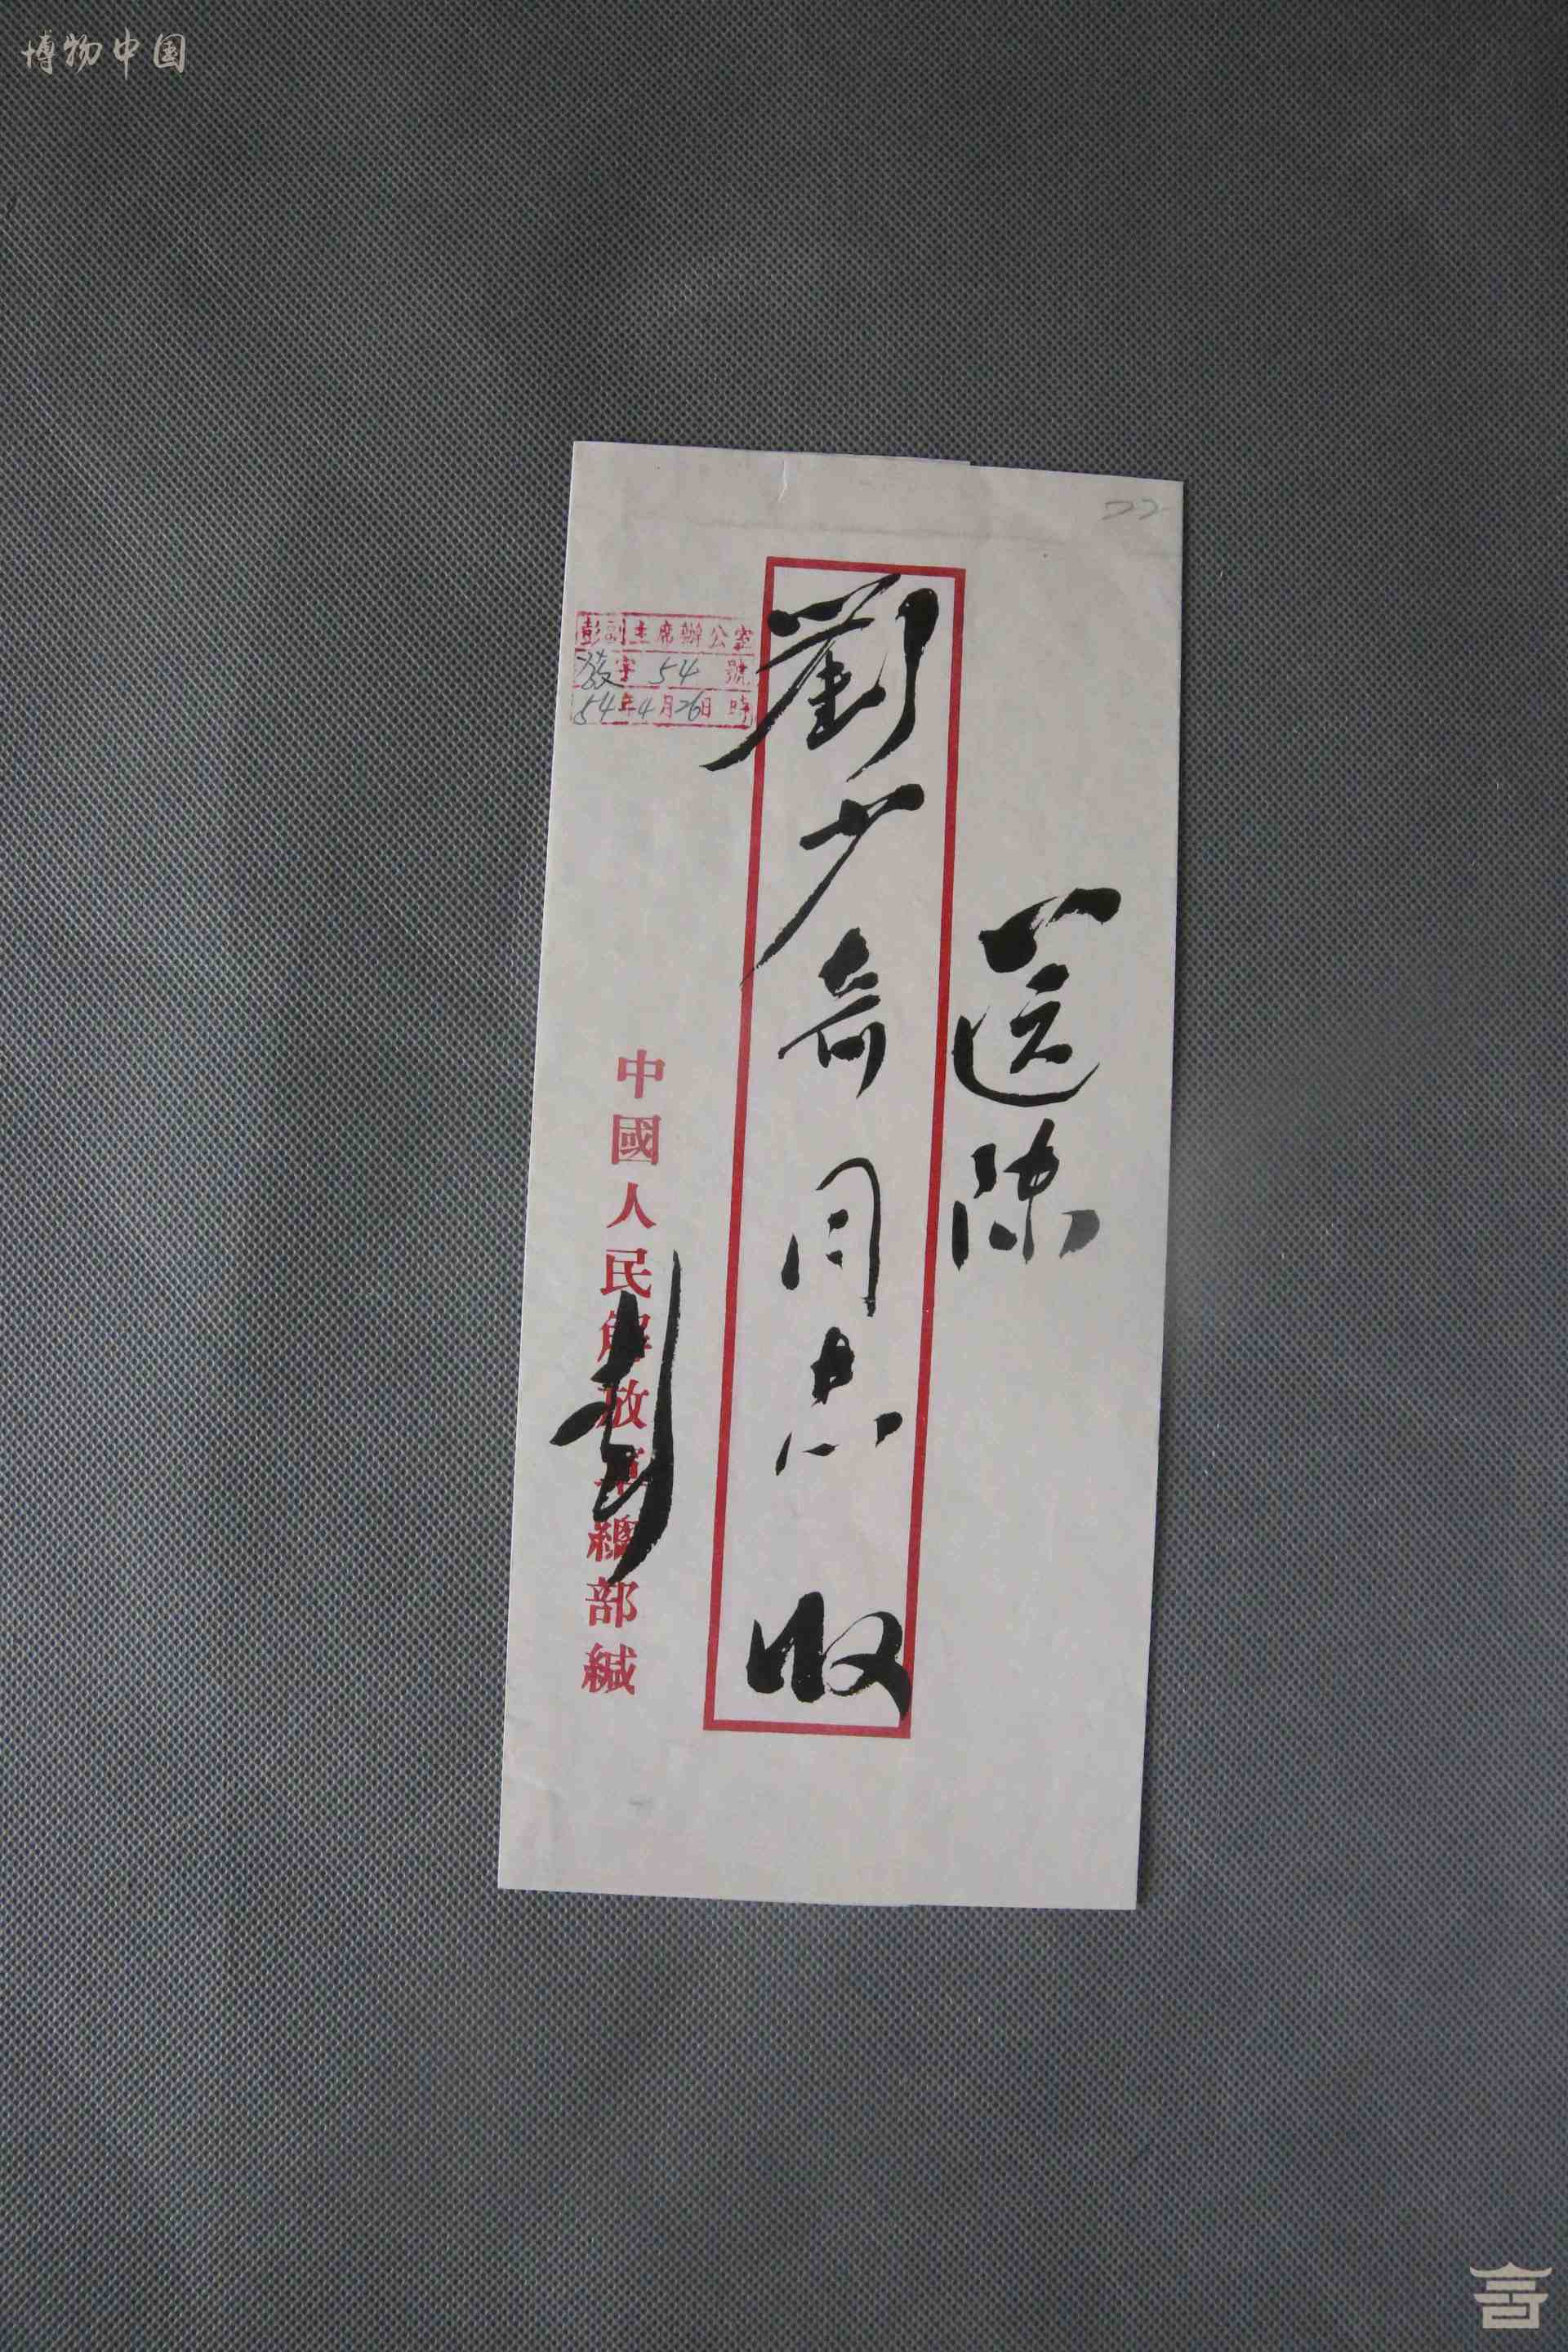 博物中国
22
送陳
劉少奇同志收
彭副主席辦公室
發字54號
54年4月26日時
中國人民解放軍總部緘
彭